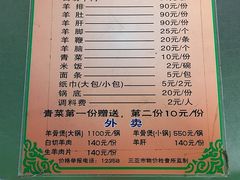 羊排 90元/份
羊肚 90元/份
羊肝 90元/份
羊脚 25元/个
羊鞭 200元/条
羊腩 20元/个
青菜 10元/份
米饭 2元/碗
面条 5元/包
纸巾(大包/小包) 5元/2元
锅底 20元/份
调料费 2元/人
青菜第一份赠送，第二份10元/份
外卖
羊骨煲(大锅) 1100元/锅 羊骨煲(小锅) 550元/锅
白切羊肉 140元/份 羊肝 140元/份
生羊肉片 140元/份
价格举报电话：12358 三亚市物价检查所监制